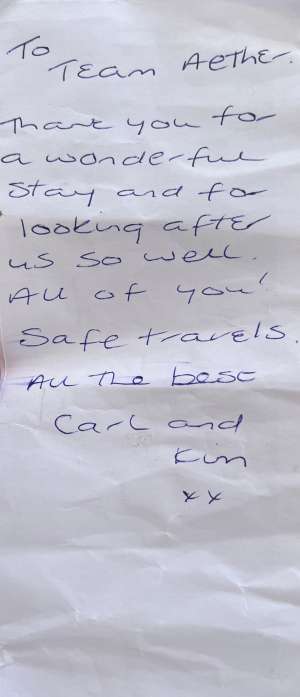 To
Team Aether.
Thank you for
a wonderful
stay and for
looking after
us so well.
All of you!
Safe travels.
All the best
Carl and
Kim
xx